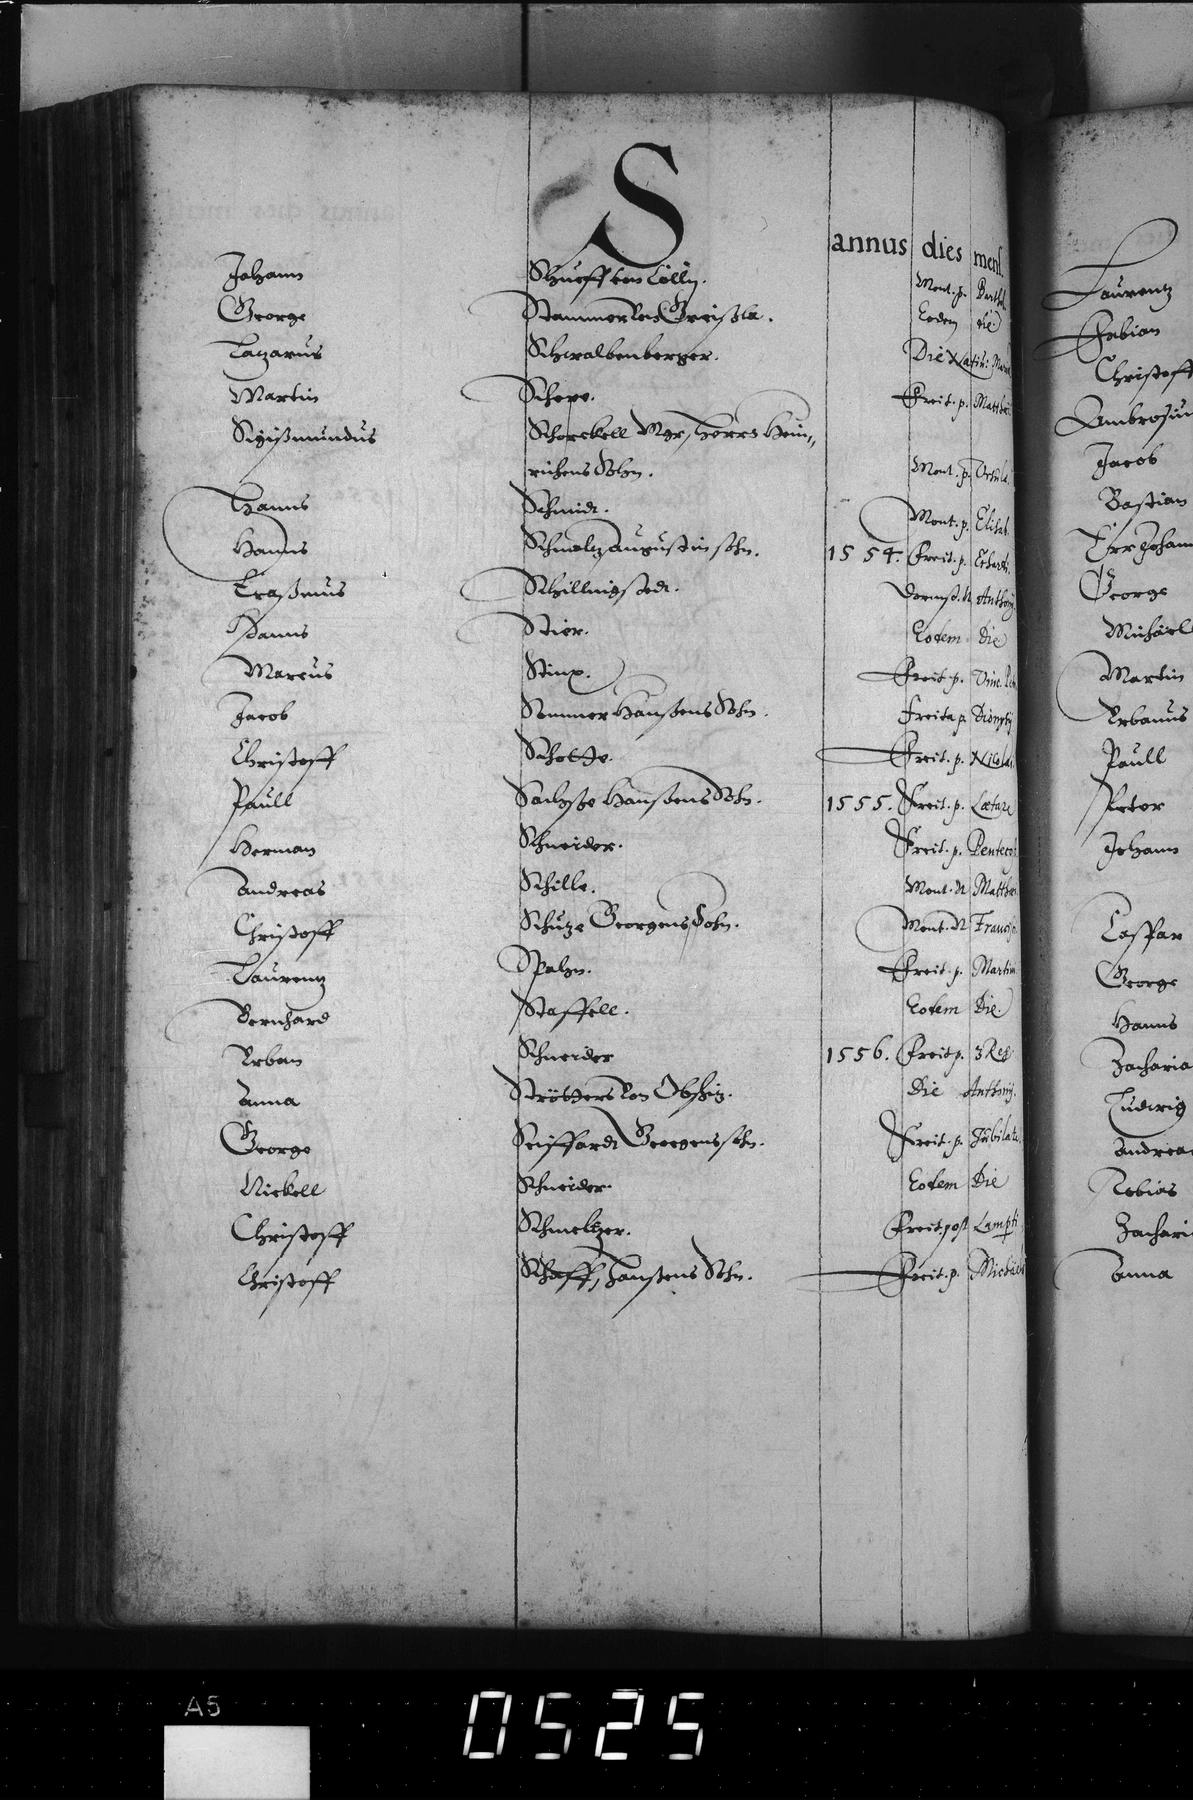 S
annus dies mens.
Johann Schueff von Cölln. Mont. p. Barthol.
George Stammer von Greißla. Eodem die
Lazarus Schwalbenberger. Die Nativi: Mariæ
Martin Schope. Freit. p. Matthæi
Sigißmundus Schorckell Mgr, Herrn Hein„
richens Sohn. Mont. p. Ursulæ
Hanns Schmidt. Mont. p. Elisab.
Hanns Schmoltz Augustin sohn. 1554. Freit. p. Erhardi.
Eraßmus Schillingstedt. Anthonj.
Hanns Stier. Eodem Die
Marcus Stinx. Freit. p. Vinc.
Jacob Sommer Hanßens Sohn. Freita p Dionysij
Christoff Schotte. Freit. p. Nicolai.
Paull Sachße Hanßens Sohn. 1555. Freit. p. Lætare
Herman Schneider. Freit. p. Pentecos
Andreas Schille. Mont. N Matthæi
Christoff Schutze Georgens Sohn. Mont. N Francis
Laurentz Spahn. Freit. p. Martini
Bernhard Staffell. Eodem Die.
Urban Schneider 1556. Freit p. 3 Reg.
Anna Strötters von Obschitz. Die Anthonij.
George Seiffardt Georgens sohn. Freit. p. Jubilate
Nickell Schneider. Eodem Die
Christoff Schmeltzer. Freit. post Lamp̄ti
Christoff Schaff, Hanßens Sohn. Freit. p. Michaelis
Laurentz
Fabian
Christoff
Ambrosius
Jacob
Bastian
Err Johann
George
Michäel
Martin
Urbanus
Paull
Peter
Johann
Casspar
George
Hanns
Zacharia
Ludwig
Andreas
Tobias
Zachari
Anna
A5
0525